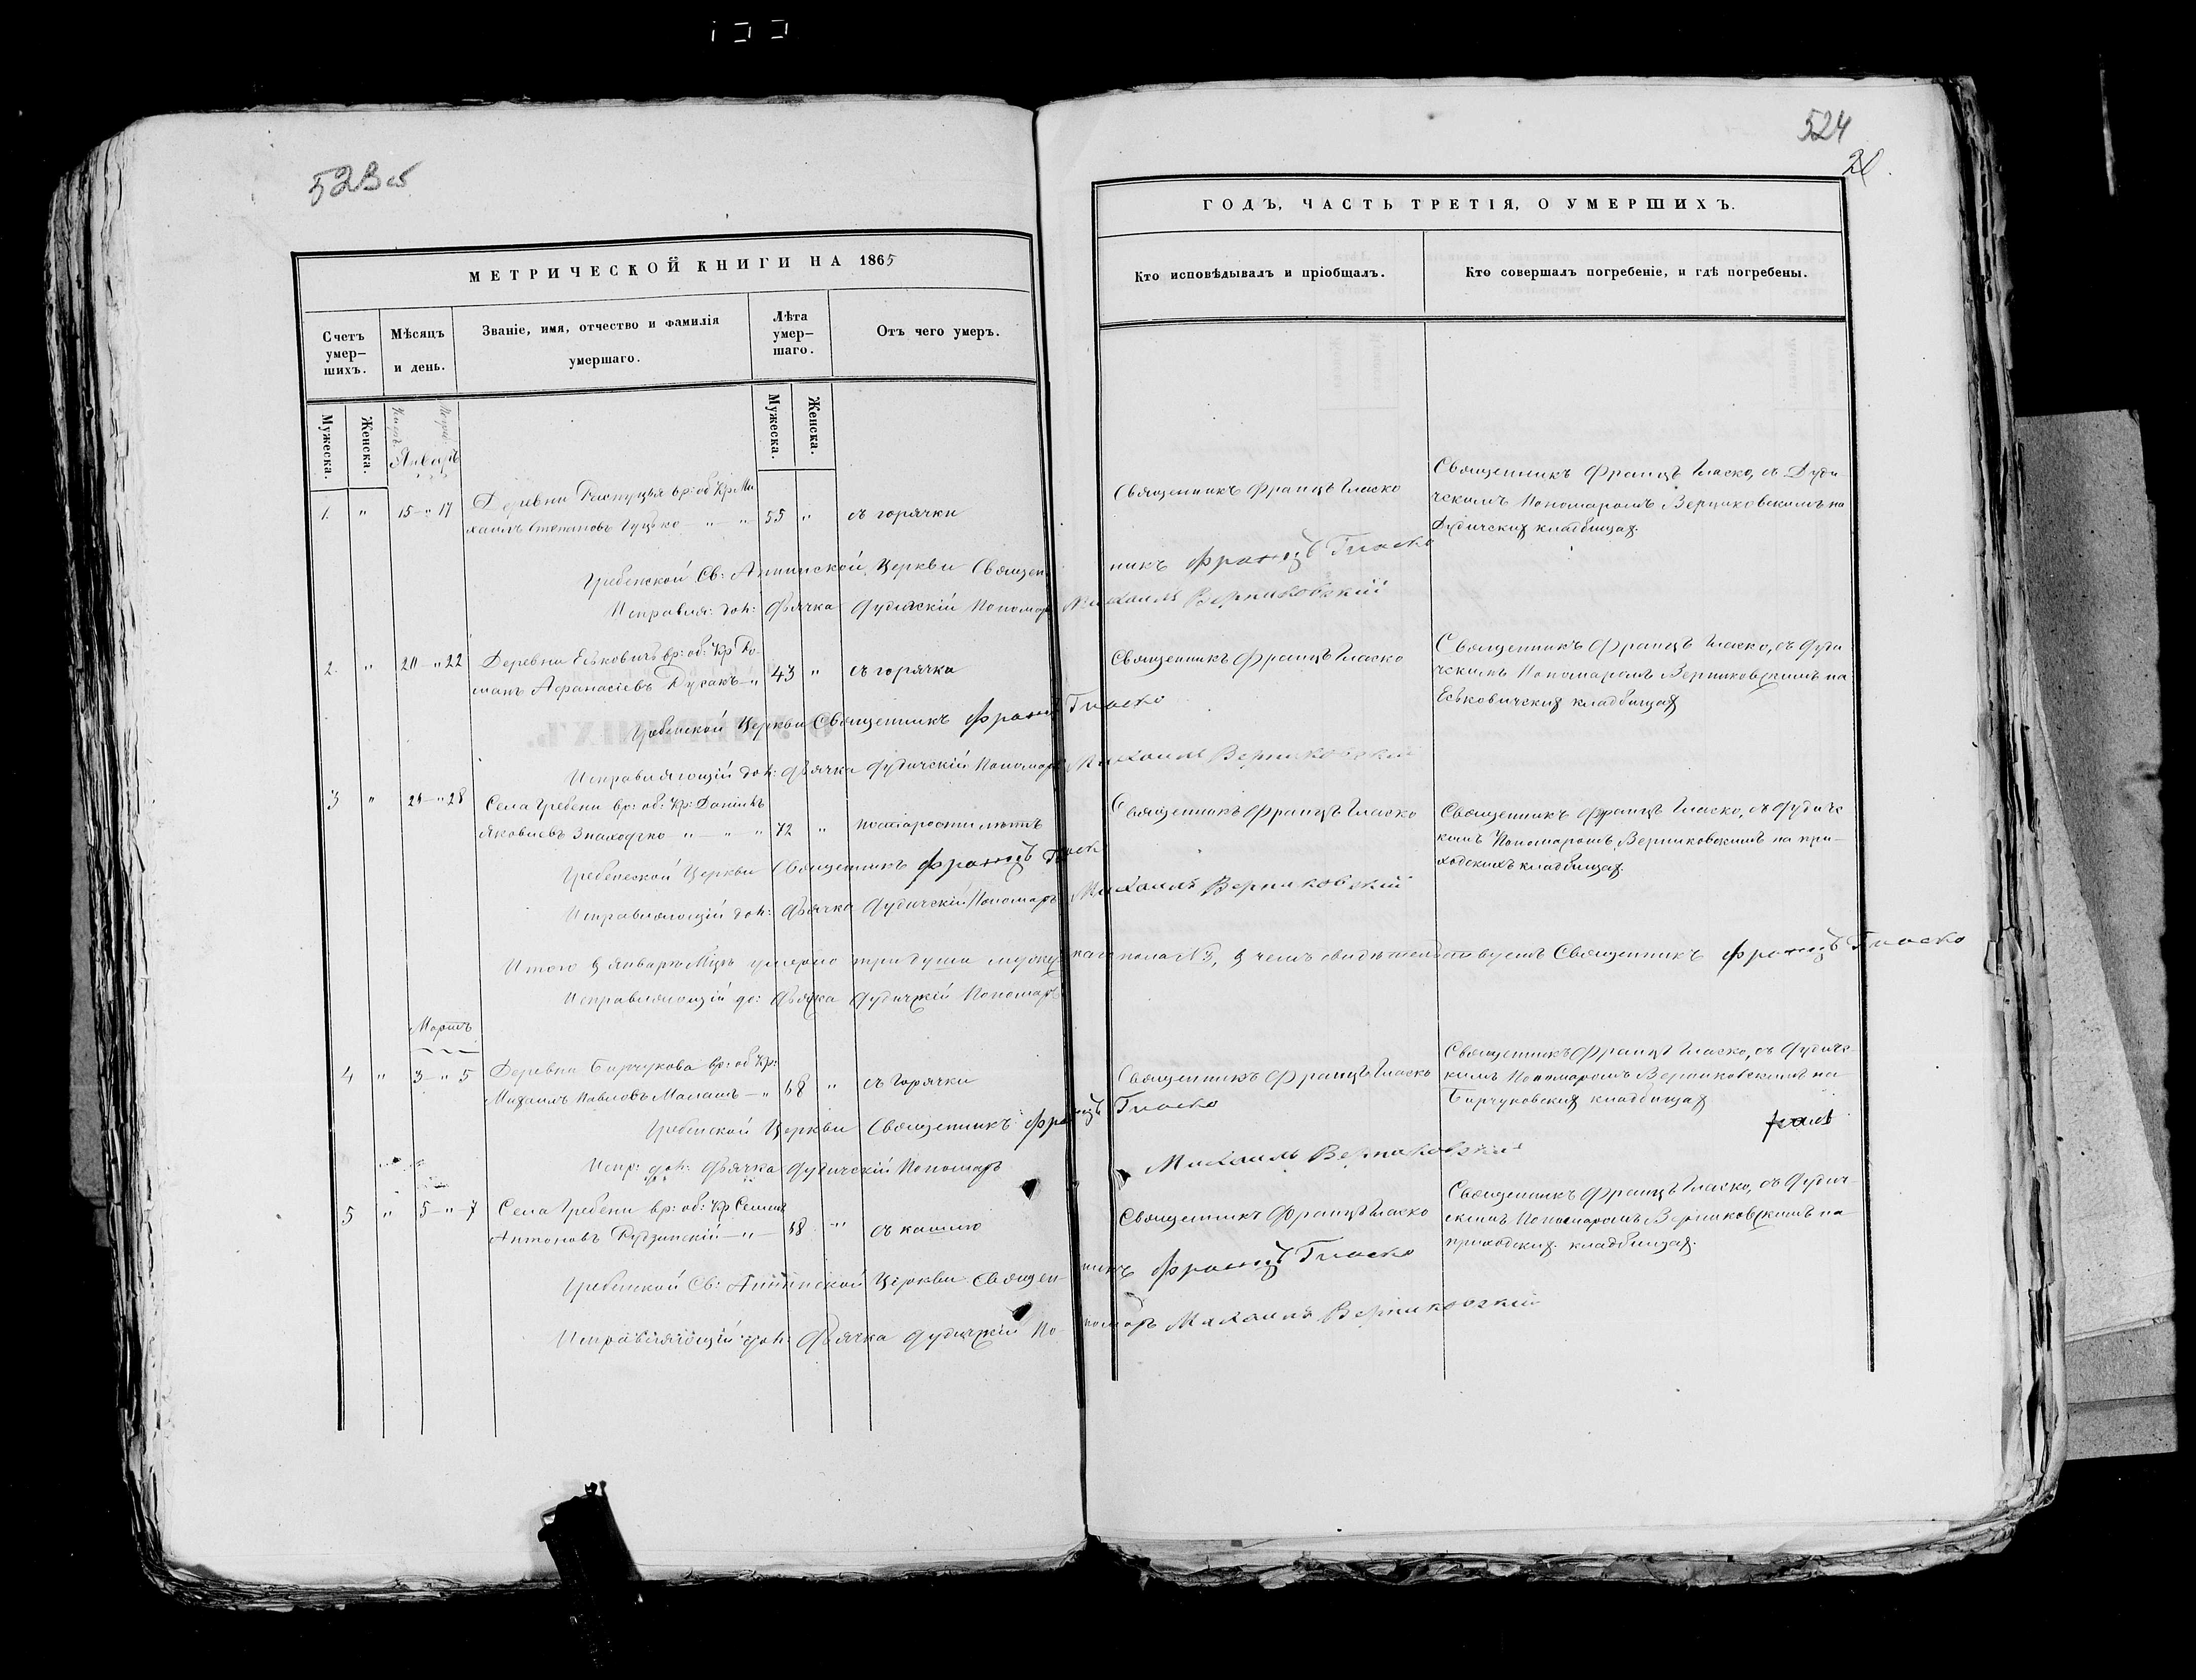 523 об
МЕТРИЧЕСКОЙ КНИГИ НА 1865
Счетъ умер-шихъ.
Мѣсяцъ и день.
Званіе, имя, отчество и фамилія умершаго.
Лѣта умер-шаго.
Отъ чего умеръ.
Мужеска.
Женска.
Мужеска.
Женска.
Январь
1. " 15 - " 17 Деревни вр: об: Кр: Ми
хаилъ Степановъ Гуцько - " - " 55 " съ горячки
Гребенской Св: Аннинской Церкви Священ
Исправля: дол: Дьячка Дудичскій Пономарь
2. " 20 - " 22 Деревни Еськовичъ вр: об: Кр Ро-
манъ Афанасіевъ - " 43 " съ горячки
Гребенской Церкви Священникъ Францъ
Исправляющій дол: Дьячка Дудичскій Пономарь
3 " - " 28 Села Гребени вр: об: Кр: Даніилъ
Яковлевъ " - " - " 72 " по старости лѣтъ
Гребенской Церкви Священникъ Францъ
Исправляющій дол: Дьячка Дудичскій Пономарь
Итого в Январѣ Мцѣ умерло три души
Исправляющій до: Дьячка Дудичскій Пономарь
Мартъ
4 " 3 - " 5 Деревни Бирчукова вр: об Кр:
Михаилъ Павловъ - " 68 " съ горячки
Гребенской Церкви Священникъ
Испр: дол: Дьячка Дудичскій Пономарь
5 " 5 - " 7 Села Гребени вр: об: Кр Семенъ
Антоновъ - " - 68 " съ кашлю
Гребенской Св: Аннинской Церкви Священ
Исправляющій дол: Дьячка Дудичскій По
524
ГОДЪ, ЧАСТЬ ТРЕТІЯ, О УМЕРШИХЪ.
Кто исповѣдывалъ и пріобщалъ.
Кто совершалъ погребеніе, и гдѣ погребены.
Священникъ Францъ Гласко
Священникъ Францъ Гласко, съ Дуди
чскимъ Пономаромъ Верниковскимъ на
Дудичских кладбищах.
никъ Францъ Гласко
Михаилъ Верниковскій
Священникъ Францъ Гласко
Священникъ Францъ Гласко, съ Дуди
чскимъ Пономаромъ Верниковскимъ на
Еськовичских кладбищах
Гласко
Михаилъ Верниковскій
Священникъ Францъ Гласко
Священникъ Францъ Гласко, съ Дудичс
кимъ Пономаромъ Верниковскимъ на при-
ходскихъ кладбищах.
Михаилъ Верниковскій
пола № 3, в чемъ свидѣтельствуетъ Священникъ Францъ Гласко
Священникъ Францъ Гласко
Священникъ Францъ Гласко, съ Дудичс-
кимъ Пономаромъ Верниковскимъ на
Бирчуковских кладбищах
Гласко
Михаилъ Верниковскій
Священникъ Францъ Гласко
Священникъ Францъ Гласко, съ Дудич-
скимъ Пономаромъ Верниковскимъ на
приходских. кладбищах.
никъ Францъ Гласко
номарь Михаилъ Верниковскій